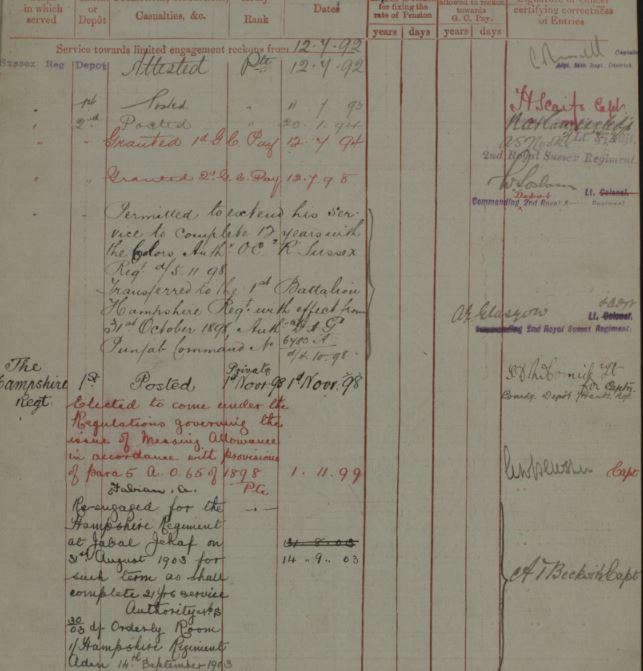 in which served
or Depôt
Casualties, &c.
Rank
Dates
for fixing the rate of Pension
allowed to reckon towards G. C. Pay.
certifying correctness of Entries
years days years days
Service towards limited engagement reckons from 12.7.92
Sussex Reg Depôt Attested Pte 12.7.92
" 1st Posted " 11 7 93
" 2nd Posted " 20.1.94
H Scaife Capt
" " Granted 1st G.C. Pay 12.7 94
Lt
2nd Royal Sussex Regiment.
" " Granted 2d G.C. Pay 12.7 98
Lt. Colonel.
Commanding 2nd Royal Sussex Regiment
" " Permitted to extend his ser-
vice to complete 12 years with
the Colors, Auth" OC 2 R. Sussex
Regt d/5.11.98
Transferred to the 1st Battalion
Hampshire Regt. with effect from
31st October 1898, Auth
Punjab Command No 6480 A
Glasgow
Lt. Colonel.
Commanding 2nd Royal Sussex Regiment.
The Hampshire Regt 1st Posted Private 1st Novr. 98 1st Novr. 98
Elected to come under the
Regulations governing the
issue of Messing Allowance
in accordance with provisions
of para 5 A.O. 65 of 1898 1.11.99
Capt
Fabian. A. Pte
Re-engaged for the
Hampshire Regiment
at Jabal Jehaf on 31-8-03
31st August 1903 for 14-9-03
such term as shall
complete 21 yrs service
A T Beckwith Capt
Authority
30/03 d/ Orderly Room
1/Hampshire Regiment
Aden 14th September 1903